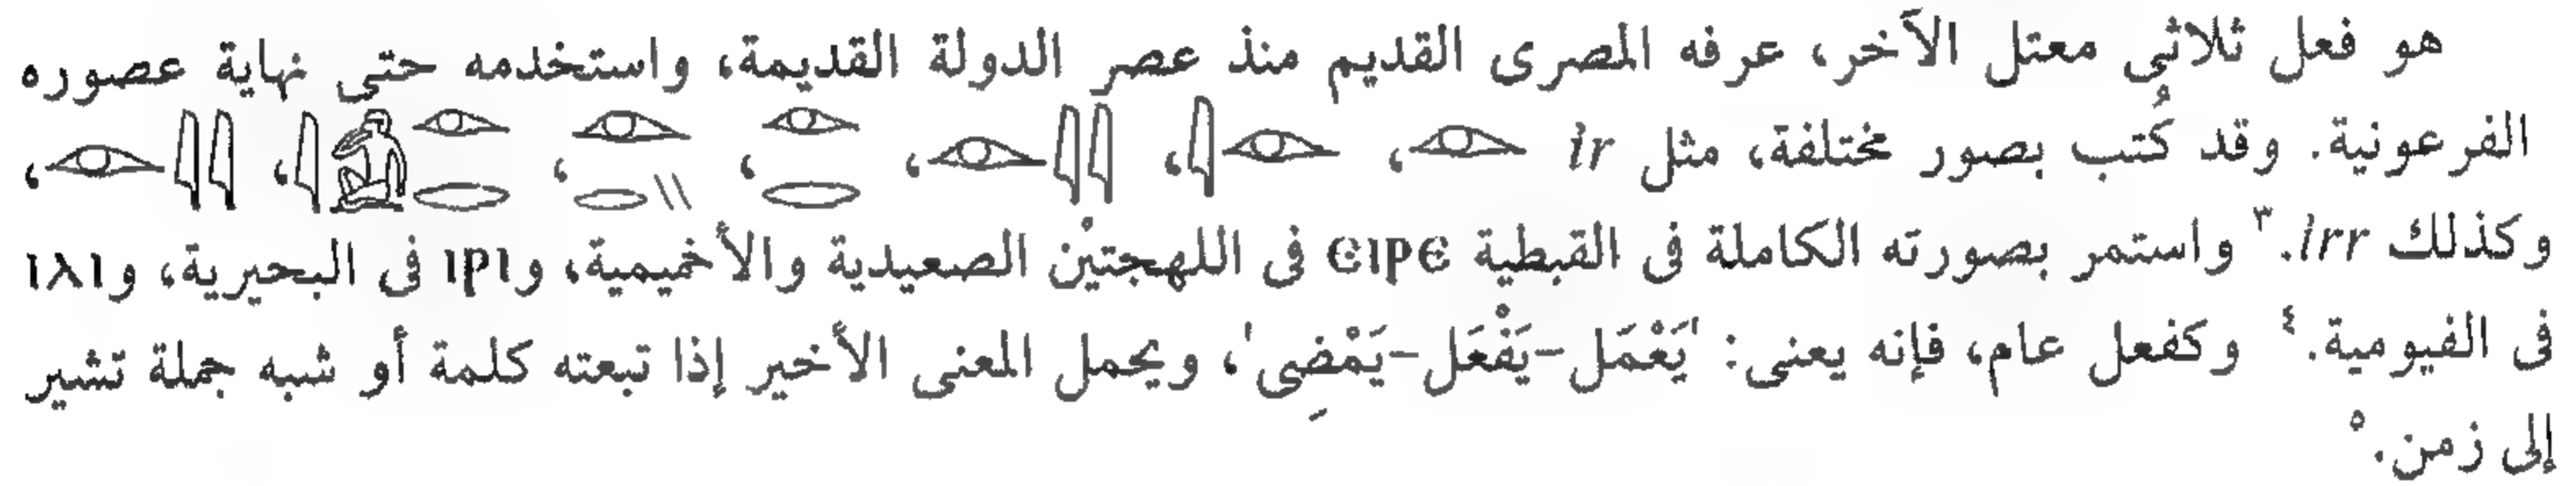 هو فعل ثلاثى معتل الآخر، عرفه المصرى القديم منذ عصر الدولة القديمة، واستخدمه حتى نهاية عصوره
الفرعونية. وقد كُتب بصور مختلفة، مثل ir 𓁹، 𓁹𓇋، 𓇋𓇋𓁹، 𓁹𓂋، 𓁹𓂋𓏭، 𓁹𓂋𓀁𓇋، 𓇋𓇋𓁹،
وكذلك irr.٣ واستمر بصورته الكاملة فى القبطية ⲉⲓⲣⲉ فى اللهجتيْن الصعيدية والأخميمية، وⲓⲣⲓ فى البحيرية، وⲓⲗⲓ
فى الفيومية.٤ وكفعل عام، فإنه يعنى: 'يَعْمَل-يَفْعَل-يَمْضِى'، ويحمل المعنى الأخير إذا تبعته كلمة أو شبه جملة تشير
إلى زمن.٥